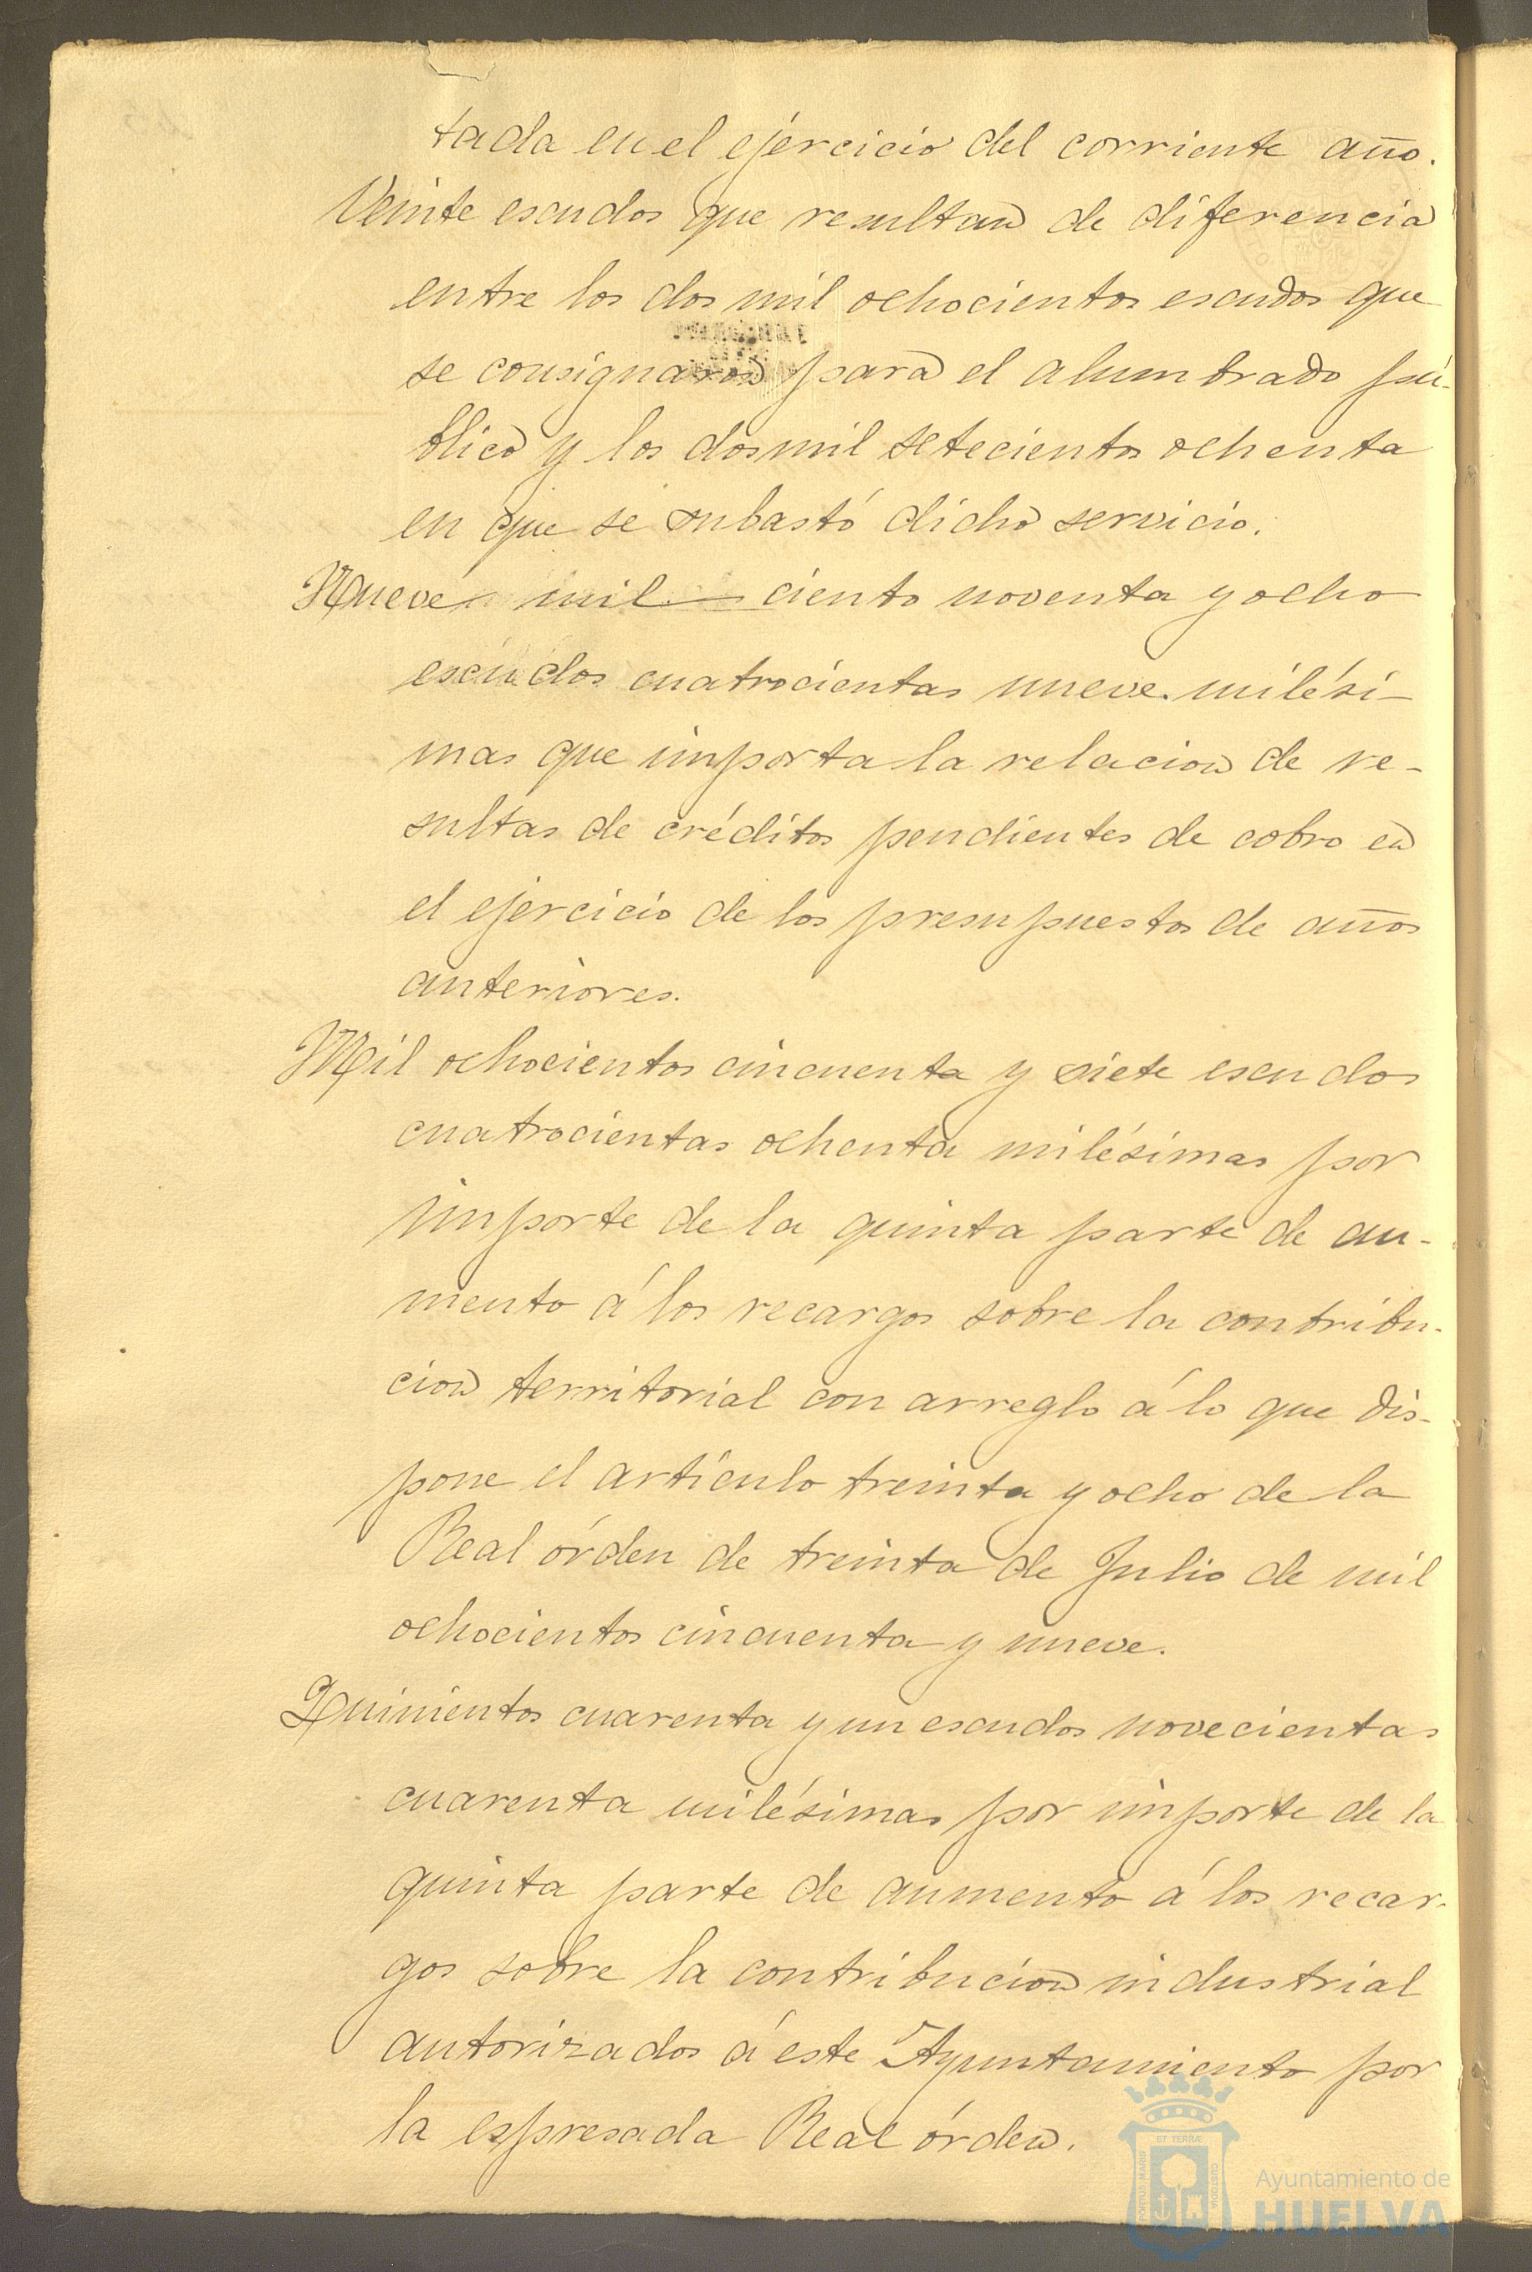 tada en el ejercicio del corriente año.
Veinte escudos que resultan de diferencia
entre los dos mil ochocientos escudos que
se consignaron para el alumbrado pú-
blico y los dos mil setecientos ochenta
en que se subastó dicho servicio.
Nueve mil ciento noventa y ocho
escudos cuatrocientas nueve milési-
mas que importa la relacion de re-
sultas de créditos pendientes de cobro en
el ejercicio de los presupuestos de años
anteriores.
Mil ochocientos cincuenta y siete escudos
cuatrocientas ochenta milésimas por
importe de la quinta parte de au-
mento á los recargos sobre la contribu-
cion territorial con arreglo á lo que dis-
pone el artículo treinta y ocho de la
Real órden de treinta de Julio de mil
ochocientos cincuenta y nueve.
Quinientos cuarenta y un escudos novecientas
cuarenta milésimas por importe de la
quinta parte de aumento á los recar-
gos sobre la contribucion industrial
autorizados á este Ayuntamiento por
la espresada Real órden.
Ayuntamiento de
HUELVA